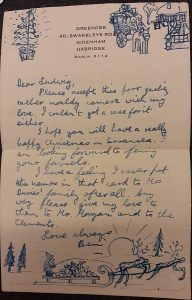 GREENOGE
40, SWAKELEYS RO
ICKENHAM
UXBRIDGE
RUISLIP 2114
Dear Ludwig,
Please accept this poor quality,
rather wobbly camera with my
love. I couldn't get a case for it
either.
I hope you will have a really
happy Christmas in Swansea. I
am looking forward to getting
your parcels.
I have a feeling I never put
the names in that card to Mrs
family after all. Any
way please give my love to
them to Mrs Morgan and to the
Clements.
Love always
Ben